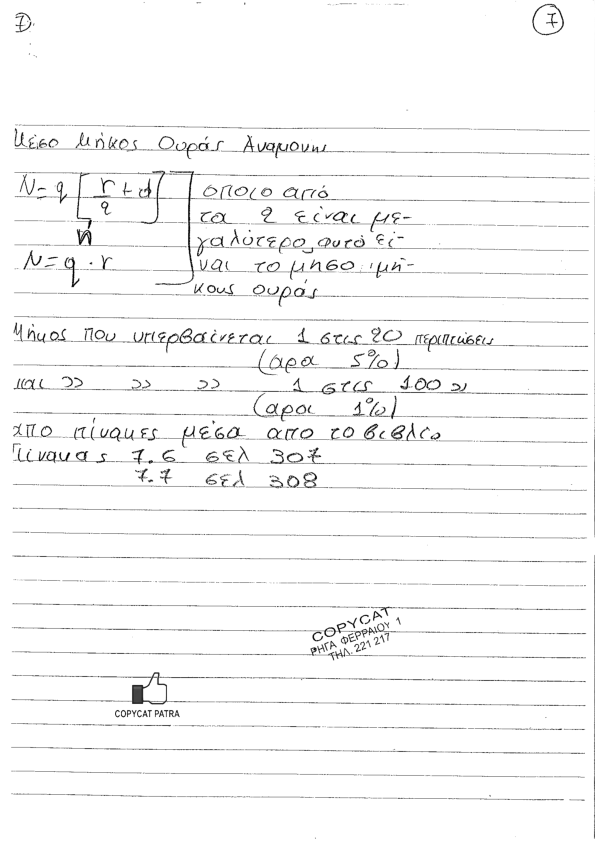 7
7
Μέσο Μήκος Ουράς Αναμονής
N = q [ r/2 + d ]
ή
N = q · r
οποιο από
τα 2 είναι με-
γαλύτερο, αυτό εί-
ναι το μησο μή-
κους ουράς
Μήκος που υπερβαίνεται 1 στις 20 περιπτώσεις
(αρα 5%)
και >> >> >> 1 στις 100 »
(αρα 1%)
απο πίνακες μέσα από το βιβλίο
Πίνακας 7.6 σελ 307
7.7 σελ 308
COPYCAT
ΡΗΓΑ ΦΕΡΡΑΙΟΥ 1
ΤΗΛ. 221 217
COPYCAT PATRA